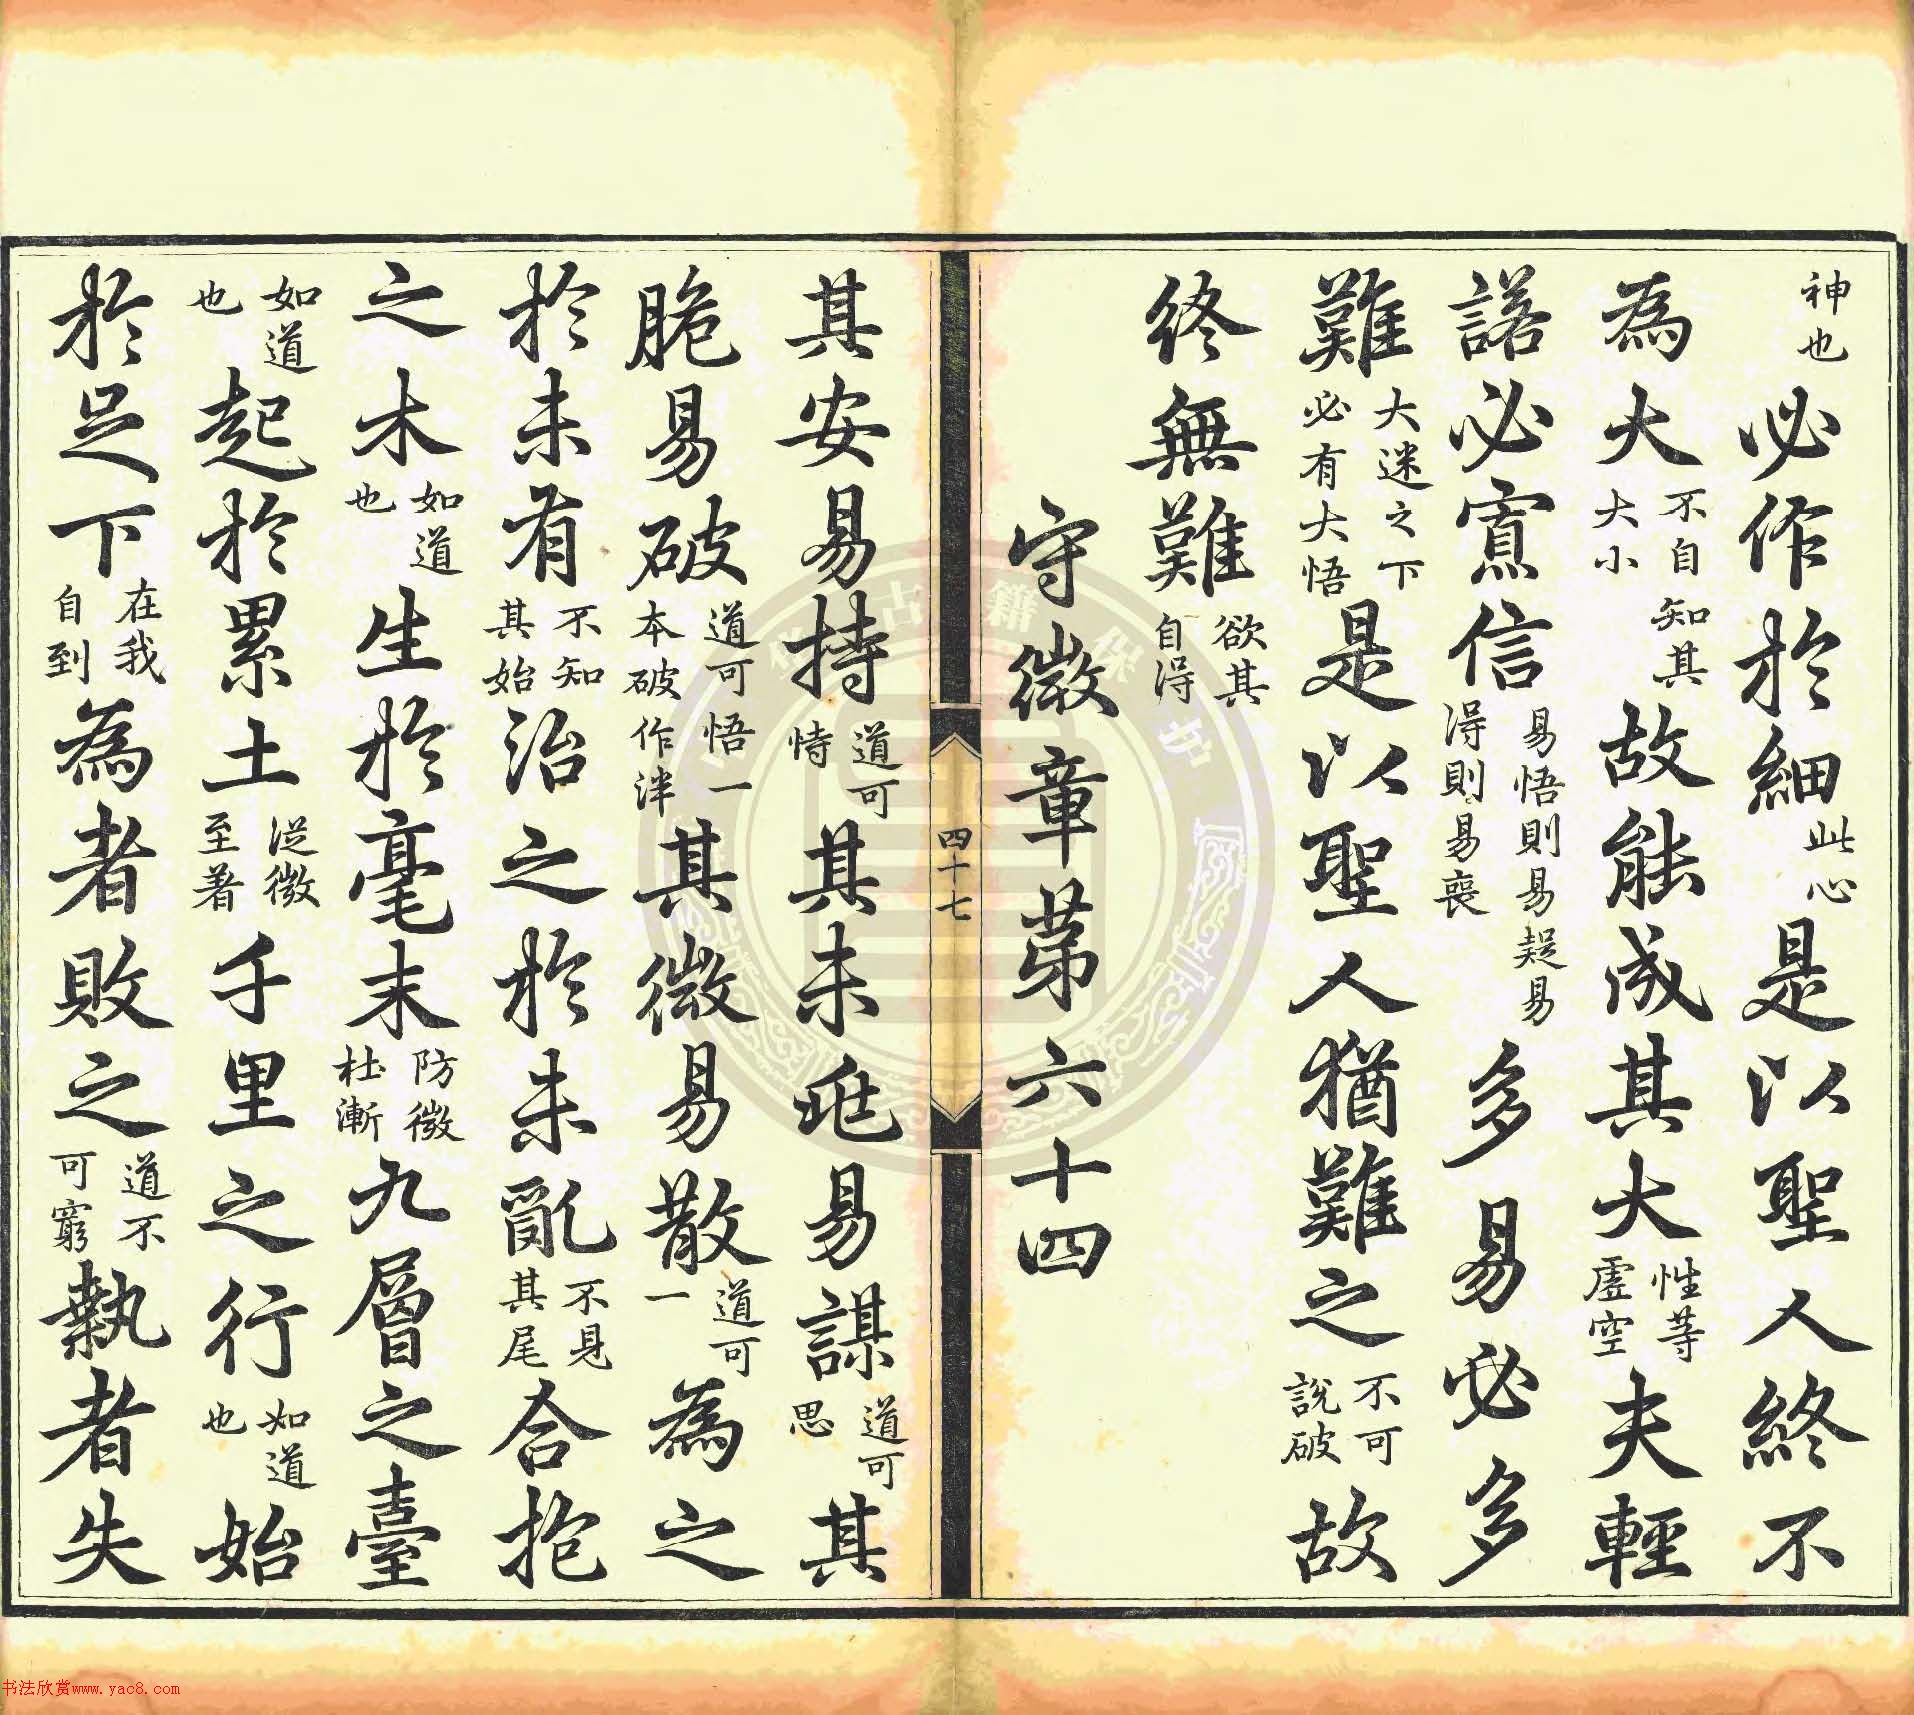 神也必作於細此心是以聖人終不
為大不自知其大小故能成其大性等虛空夫輕
諾必寡信易悟則易疑易得則易喪多易必多
難大迷之下必有大悟是以聖人猶難之不可說破故
終無難欲其自得
守微章第六十四
四十七
其安易持道可恃其未兆易謀道可思其
脆易破道可悟一本破作泮其微易散道可一為之
於未有不知其始治之於未亂不見其尾合抱
之木如道也生於毫末防微杜漸九層之臺
如道也起於累土從微至著千里之行如道也始
於足下在我自到為者敗之道不可窮執者失
古籍保护
书法欣赏www.yac8.com